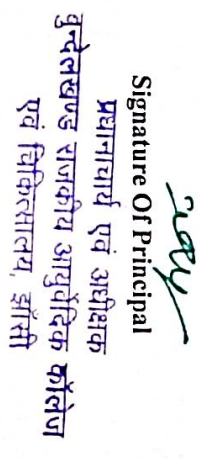 Signature Of Principal
प्रधानाचार्य एवं अधीक्षक
बुन्देलखण्ड राजकीय आयुर्वेदिक कॉलेज
एवं चिकित्सालय, झाँसी